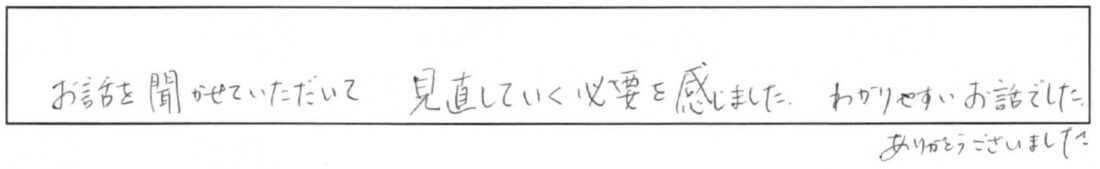 お話を聞かせていただいて 見直していく必要を感じました. わかりやすいお話でした.
ありがとうございました